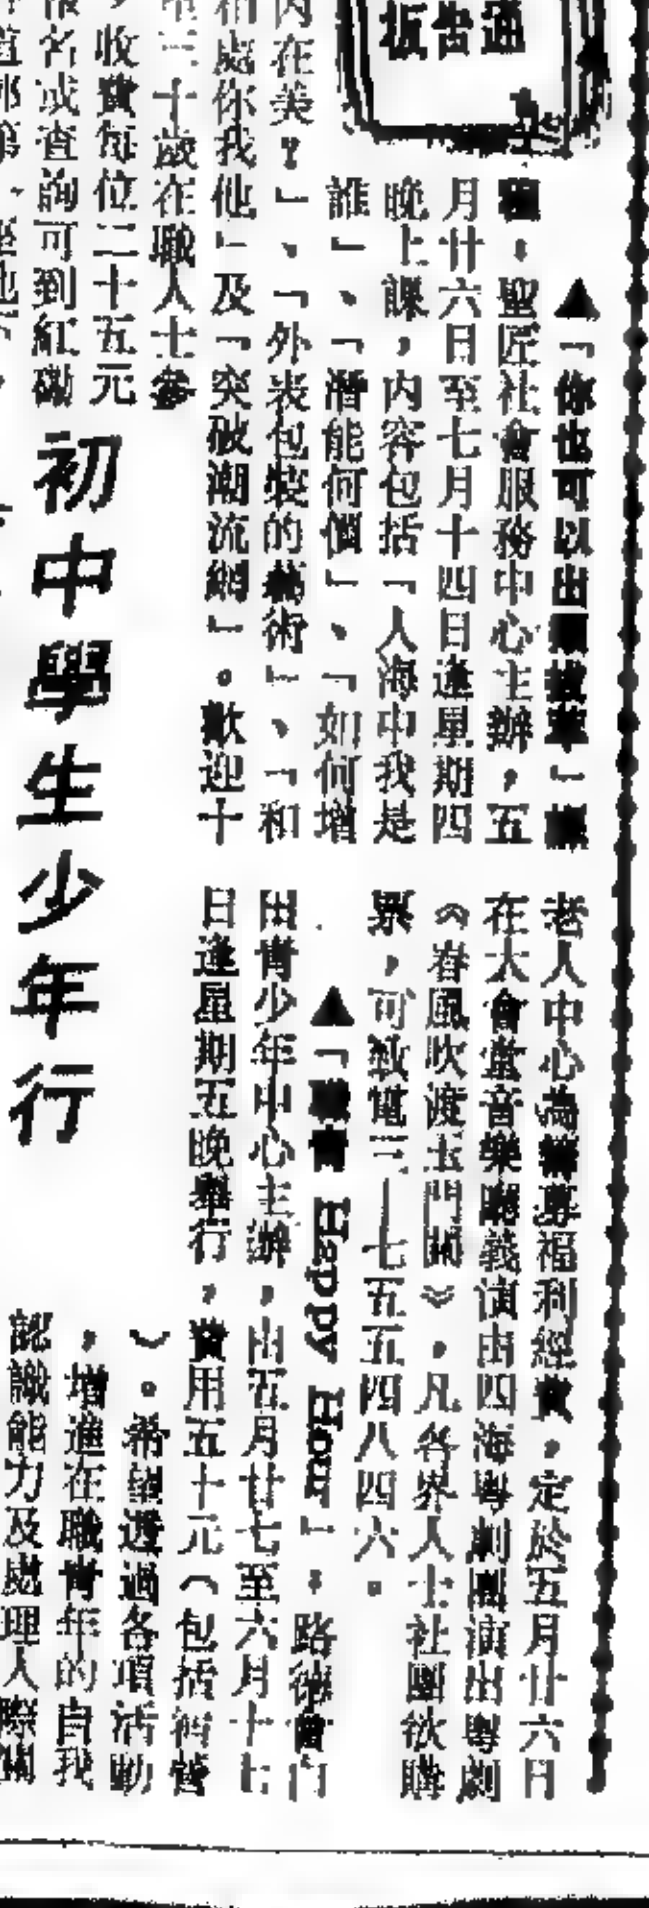 通告板
▲「你也可以出類拔萃」課
程：聖匠社會服務中心主辦，五
月廿六日至七月十四日逢星期四
晚上課，內容包括「人海中我是
誰」、「潛能何價」、「如何增
內在美？」、「外表包裝的藝術」、「和
相處你我他」及「突破潮流網」。歡迎十
三十歲在職人士參
，收費每位二十五元
報名或查詢可到紅磡
道邨第一座地下，
老人中心為籌募福利經費，定於五月廿六日
在大會堂音樂廳義演由四海粵劇團演出粵劇
《春風吹渡玉門關》，凡各界人士社團欲購
票，可致電三—七五五四八四六。
▲「職青 Happy Hour」：路德會
田青少年中心主辦，由五月廿七至六月十七
日逢星期五晚舉行，費用五十元（包括宿營
）。希望透過各項活動
，增進在職青年的自我
認識能力及處理人際關
初中學生少年行